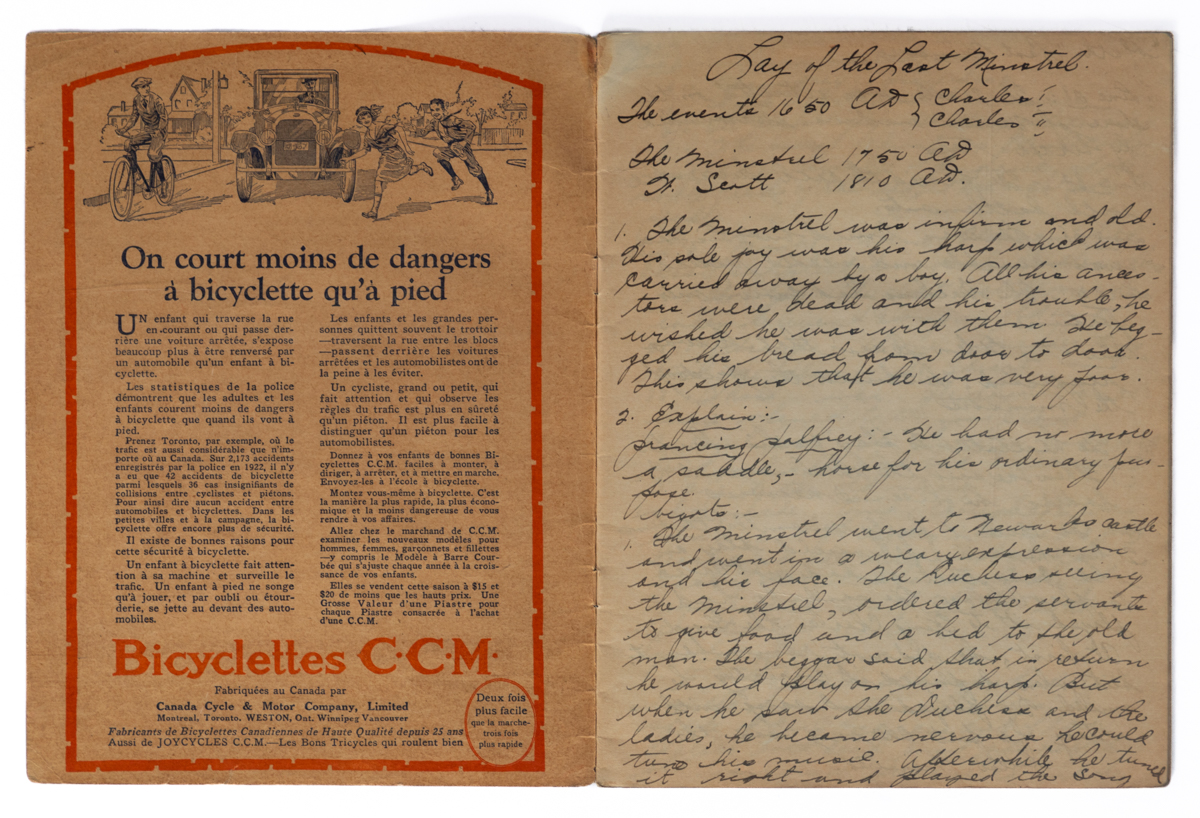 On court moins de dangers
à bicyclette qu'à pied
UN enfant qui traverse la rue
en courant ou qui passe der-
rière une voiture arrêtée, s'expose
beaucoup plus à être renversé par
un automobile qu'un enfant à bi-
cyclette.
Les statistiques de la police
démontrent que les adultes et les
enfants courent moins de dangers
à bicyclette que quand ils vont à
pied.
Prenez Toronto, par exemple, où le
trafic est aussi considérable que n'im-
porte où au Canada. Sur 2,173 accidents
enregistrés par la police en 1922, il n'y
a eu que 42 accidents de bicyclette
parmi lesquels 36 cas insignifiants de
collisions entre cyclistes et piétons.
Pour ainsi dire aucun accident entre
automobiles et bicyclettes. Dans les
petites villes et à la campagne, la bi-
cyclette offre encore plus de sécurité.
Il existe de bonnes raisons pour
cette sécurité à bicyclette.
Un enfant à bicyclette fait atten-
tion à sa machine et surveille le
trafic. Un enfant à pied ne songe
qu'à jouer, et par oubli ou étour-
derie, se jette au devant des auto-
mobiles.
Les enfants et les grandes per-
sonnes quittent souvent le trottoir
—traversent la rue entre les blocs
—passent derrière les voitures
arrêtées et les automobilistes ont de
la peine à les éviter.
Un cycliste, grand ou petit, qui
fait attention et qui observe les
règles du trafic est plus en sûreté
qu'un piéton. Il est plus facile à
distinguer qu'un piéton pour les
automobilistes.
Donnez à vos enfants de bonnes Bi-
cyclettes C.C.M. faciles à monter, à
diriger, à arrêter, et à mettre en marche.
Envoyez-les à l'école à bicyclette.
Montez vous-même à bicyclette. C'est
la manière la plus rapide, la plus écono-
mique et la moins dangereuse de vous
rendre à vos affaires.
Allez chez le marchand de C.C.M.
examiner les nouveaux modèles pour
hommes, femmes, garçonnets et fillettes
—y compris le Modèle à Barre Cour-
bée qui s'ajuste chaque année à la crois-
sance de vos enfants.
Elles se vendent cette saison à $15 et
$20 de moins que les hauts prix. Une
Grosse Valeur d'une Piastre pour
chaque Piastre consacrée à l'achat
d'une C.C.M.
Bicyclettes C·C·M·
Fabriquées au Canada par
Canada Cycle & Motor Company, Limited
Montreal, Toronto, WESTON, Ont. Winnipeg Vancouver
Fabricants de Bicyclettes Canadiennes de Haute Qualité depuis 25 ans
Aussi de JOYCYCLES C.C.M.—Les Bons Tricycles qui roulent bien
Deux fois
plus facile
que la marche-
trois fois
plus rapide
Lay of the Last Minstrel.
The events 1650 AD { Charles I
Charles II
The Minstrel 1750 AD
W. Scott 1810 AD.
1. The Minstrel was infirm and old.
His sole joy was his harp which was
carried away by a boy. All his ances-
tors were dead and his trouble, he
wished he was with them. He beg-
ged his bread from door to door.
This shows that he was very poor.
2. Explain:-
prancing palfrey:- He had no more
a saddle,- horse for his ordinary pur-
pose.
bigots:-
1. The Minstrel went to Newarks castle
and went in a weary expression
and his face. The Duchess seeing
the Minstrel, ordered the servants
to give food and a bed to the old
man. The beggar said that in return
he would play on his harp. But
when he saw the Duchess and the
ladies, he became nervous he could
tune his music. Afterwhile he tuned
it right and played the song